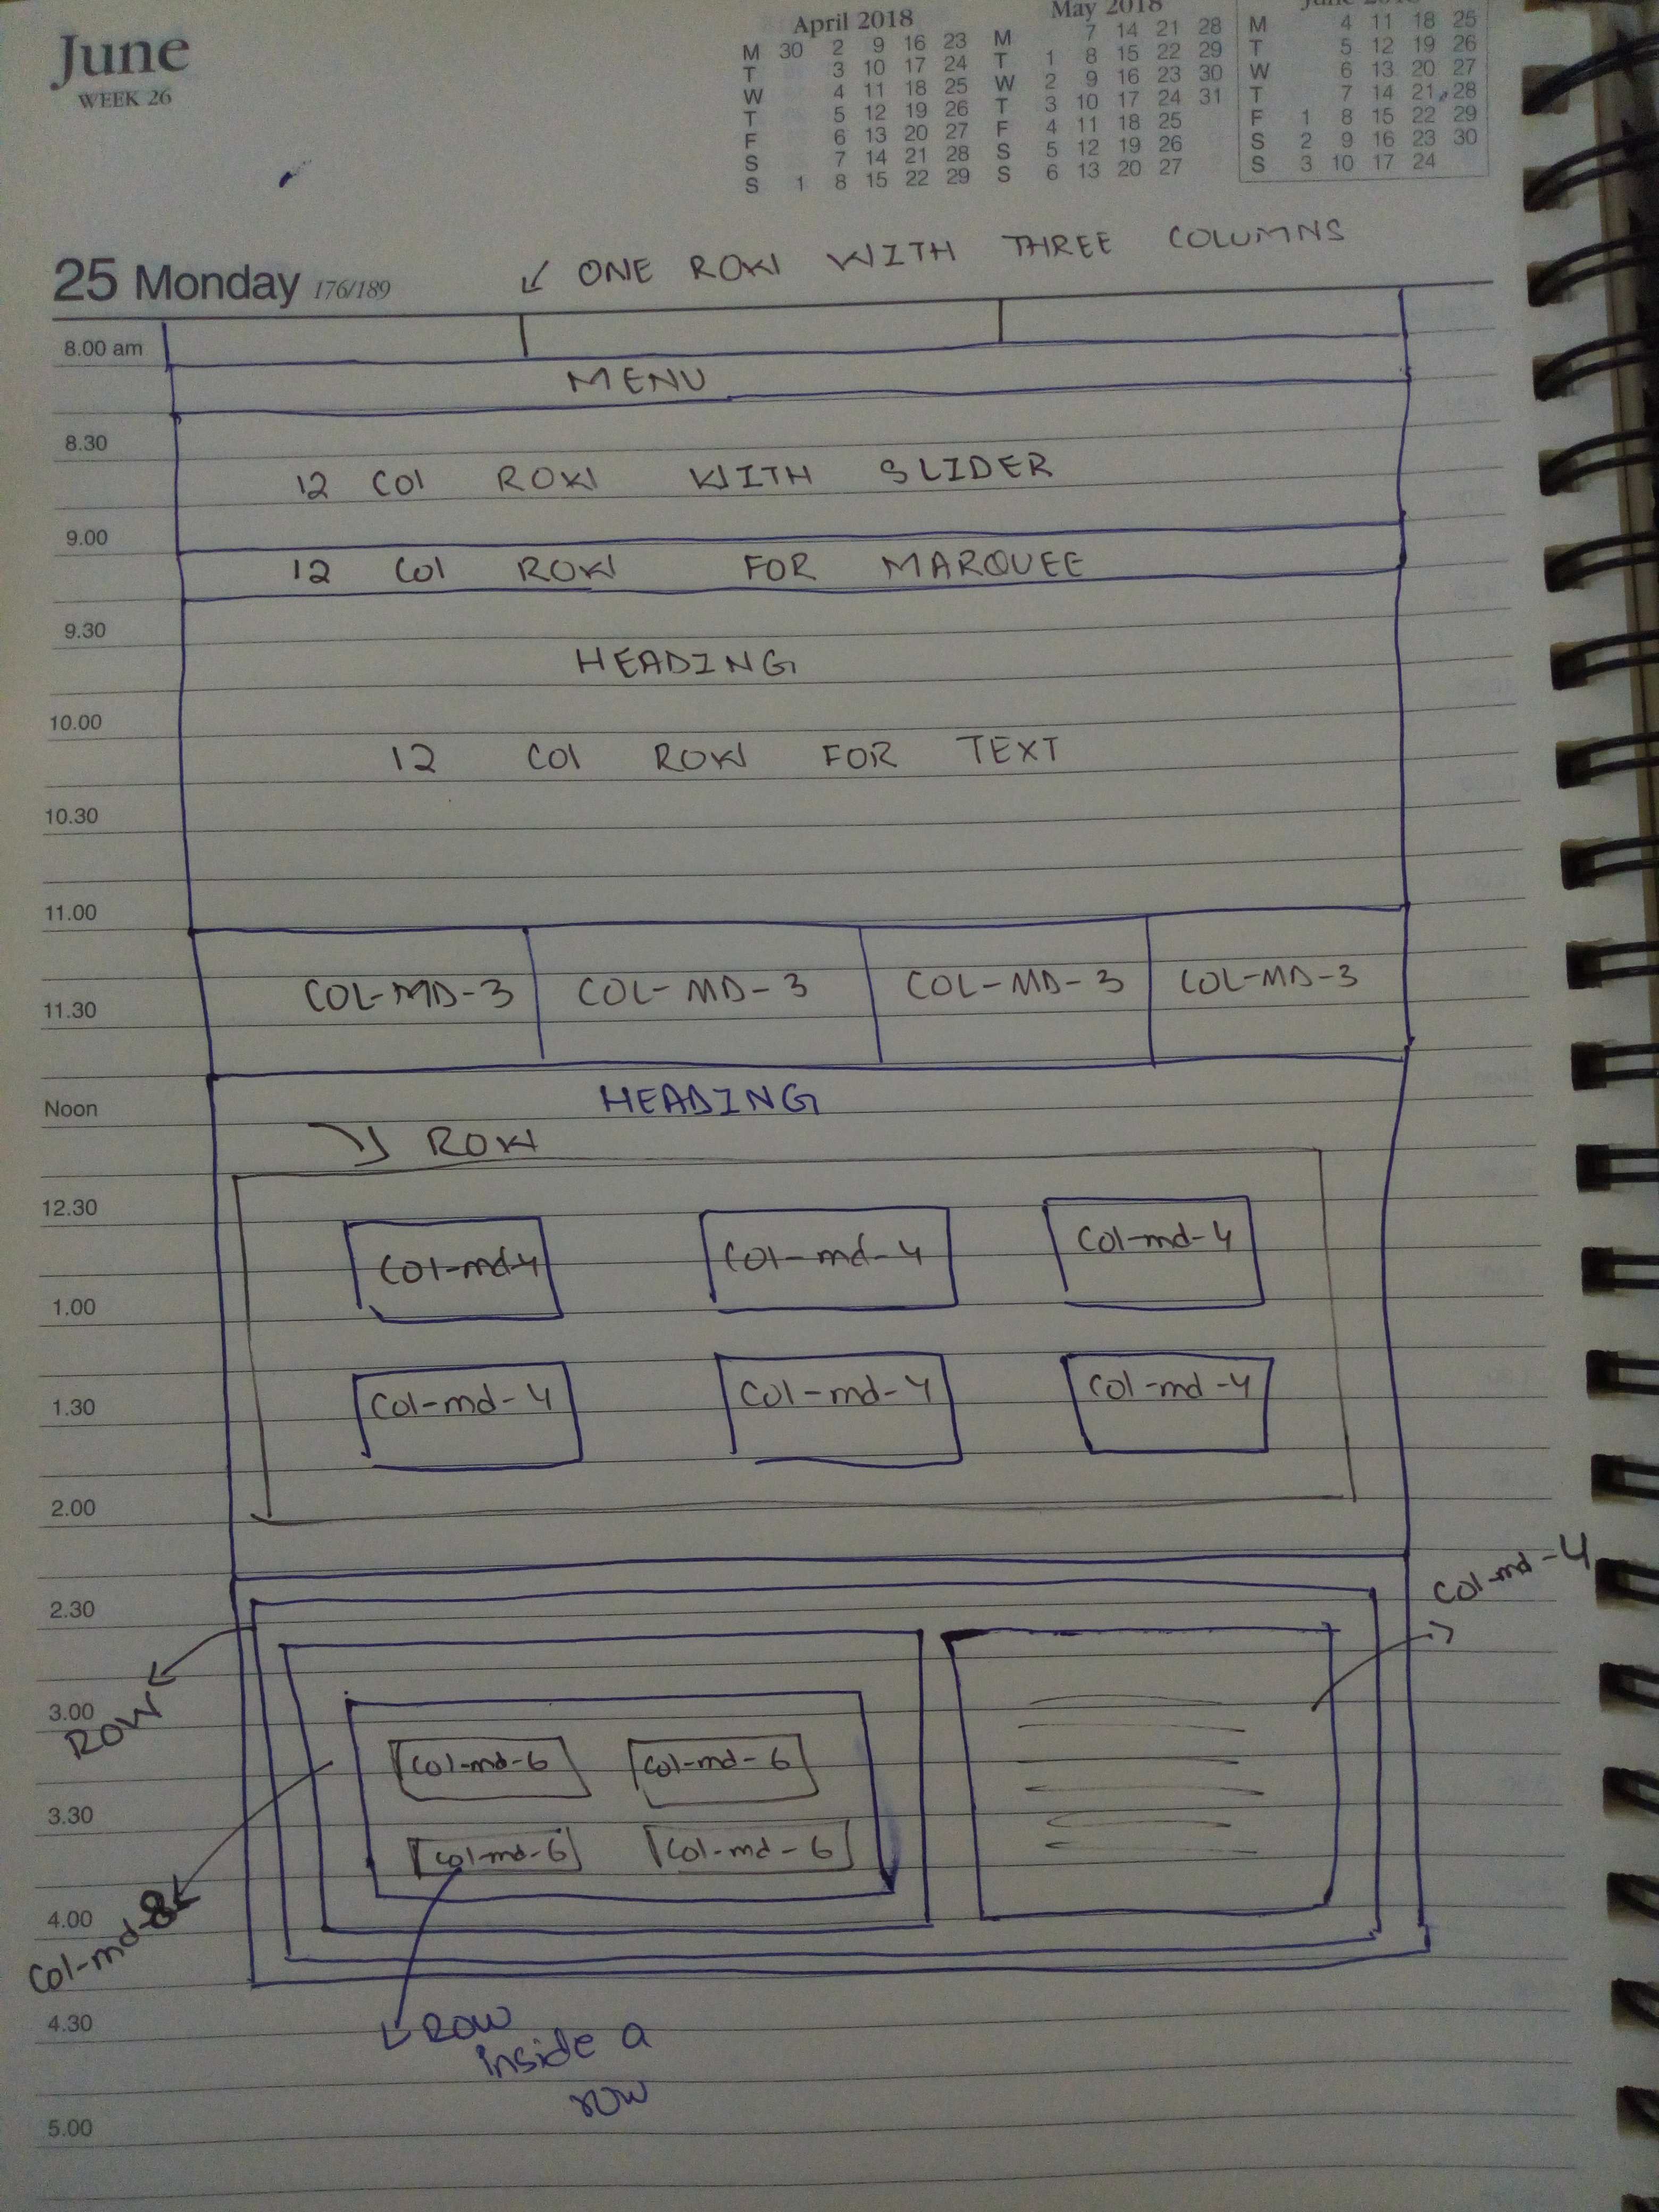 June
WEEK 26
April 2018
M 30 2 9 16 23
T 3 10 17 24
W 4 11 18 25
T 5 12 19 26
F 6 13 20 27
S 7 14 21 28
S 1 8 15 22 29
May 2018
M 7 14 21 28
T 1 8 15 22 29
W 2 9 16 23 30
T 3 10 17 24 31
F 4 11 18 25
S 5 12 19 26
S 6 13 20 27
M 4 11 18 25
T 5 12 19 26
W 6 13 20 27
T 7 14 21 28
F 1 8 15 22 29
S 2 9 16 23 30
S 3 10 17 24
25 Monday 176/189
ONE ROW WITH THREE COLUMNS
8.00 am
MENU
8.30
12 COl ROW WITH SLIDER
9.00
12 COl ROW FOR MARQUEE
9.30
HEADING
10.00
12 COl ROW FOR TEXT
10.30
11.00
COL-MD-3 COL-MD-3 COL-MD-3 COL-MD-3
11.30
HEADING
Noon
ROW
12.30
COl-md-4 COl-md-4 COl-md-4
1.00
1.30
COl-md-4 COl-md-4 COl-md-4
2.00
COl-md-4
2.30
3.00
ROW
COl-md-6 COl-md-6
3.30
COl-md-6 COl-md-6
4.00
COl-md-8
4.30
ROW
inside a
row
5.00